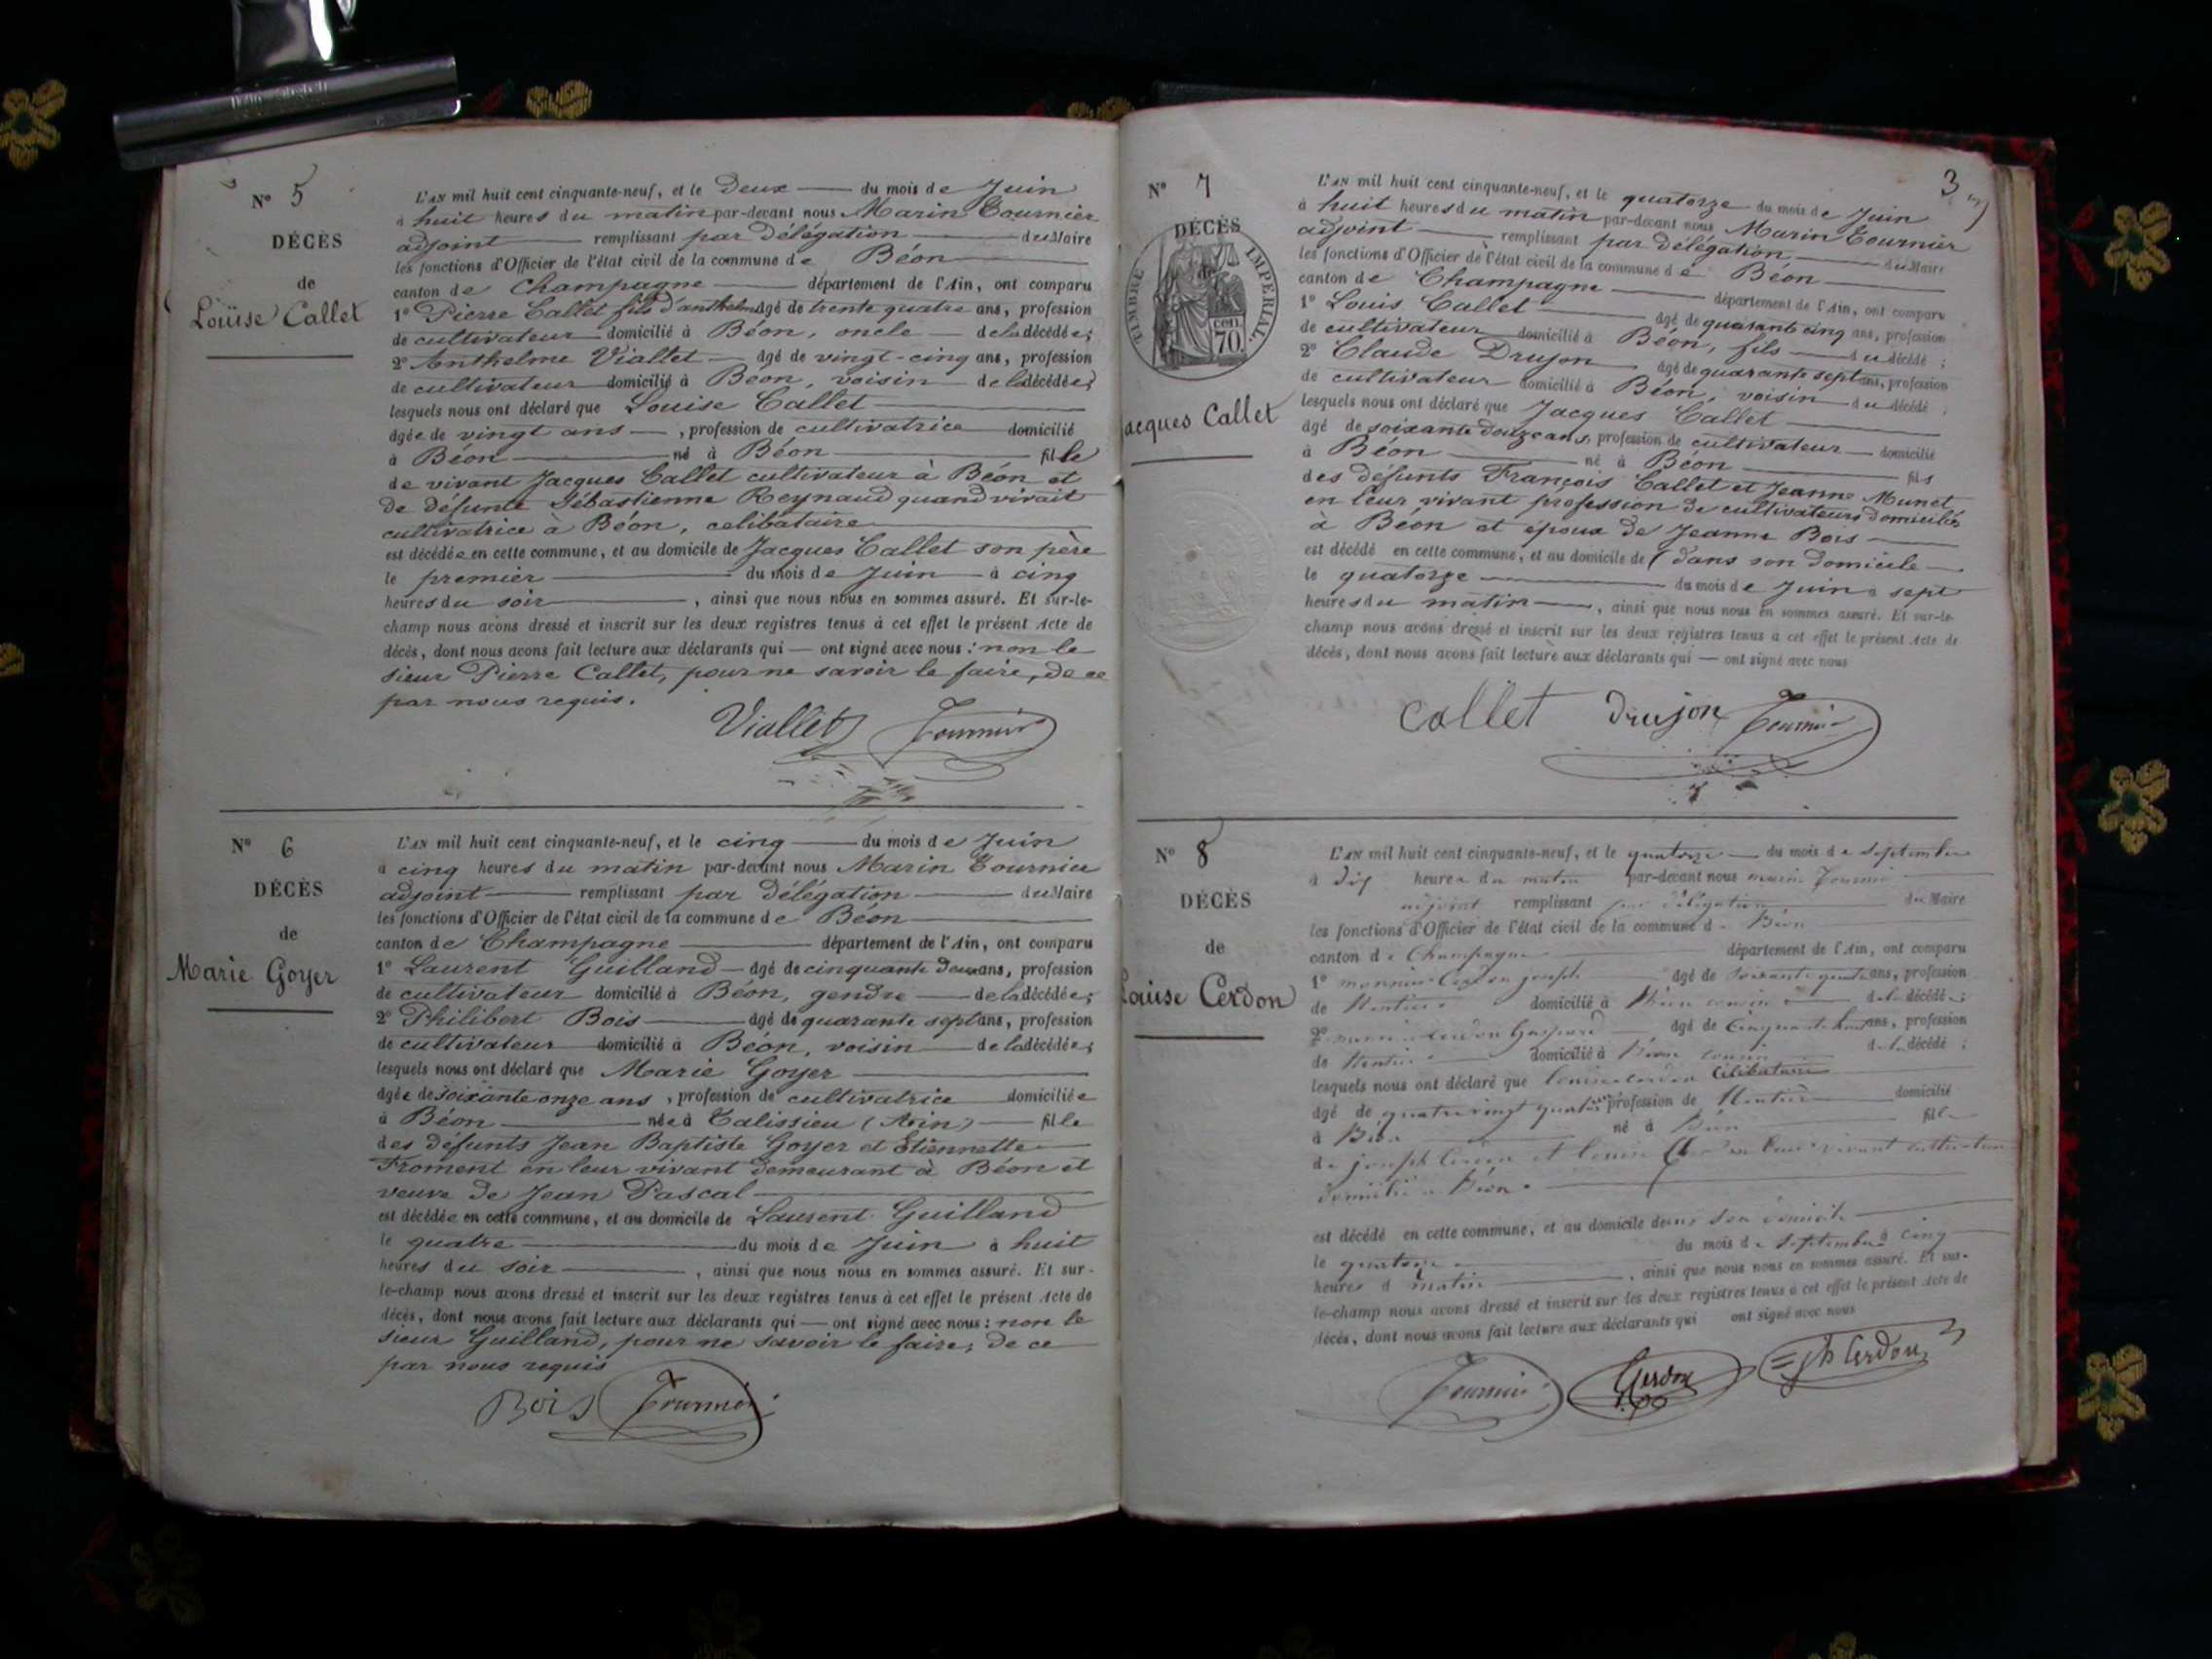 N° 5
DÉCÈS
de
Louïse Callet
L'AN mil huit cent cinquante-neuf, et le deux du mois de Juin
à huit heures du matin par-devant nous Marin Tournier
adjoint remplissant par délégation du Maire
les fonctions d'Officier de l'état civil de la commune de Béon
canton de Champagne département de l'Ain, ont comparu
1° Pierre Callet fils d'anthelme âgé de trente quatre ans, profession
de cultivateur domicilié à Béon, oncle de la décédée;
2° Anthelme Viallet âgé de vingt-cinq ans, profession
de cultivateur domicilié à Béon, voisin de la décédée;
lesquels nous ont déclaré que Louise Callet
âgée de vingt ans, profession de cultivatrice domicilié
à Béon né à Béon fille
de vivant Jacques Callet cultivateur à Béon et
de défunte Sébastienne Reynaud quand vivait
cultivatrice à Béon, celibataire
est décédée en cette commune, et au domicile de Jacques Callet son père
le premier du mois de Juin à cinq
heures du soir, ainsi que nous nous en sommes assuré. Et sur-le-
champ nous avons dressé et inscrit sur les deux registres tenus à cet effet le présent Acte de
décès, dont nous avons fait lecture aux déclarants qui — ont signé avec nous : non le
sieur Pierre Callet, pour ne savoir le faire, de ce
par nous requis.
Viallet Tournier
N° 6
DÉCÈS
de
Marie Goyer
L'AN mil huit cent cinquante-neuf, et le cinq du mois de Juin
à cinq heures du matin par-devant nous Marin Tournier
adjoint remplissant par délégation du Maire
les fonctions d'Officier de l'état civil de la commune de Béon
canton de Champagne département de l'Ain, ont comparu
1° Laurent Guilland âgé de cinquante deux ans, profession
de cultivateur domicilié à Béon, gendre de la décédée;
2° Philibert Bois âgé de quarante sept ans, profession
de cultivateur domicilié à Béon, voisin de la décédée;
lesquels nous ont déclaré que Marie Goyer
âgée de soixante onze ans, profession de cultivatrice domiciliée
à Béon née à Talissieu (Ain) fille
des défunts Jean Baptiste Goyer et Etiennette
Froment en leur vivant demeurant à Béon et
veuve de Jean Pascal
est décédée en cette commune, et au domicile de Laurent Guilland
le quatre du mois de Juin à huit
heures du soir, ainsi que nous nous en sommes assuré. Et sur-
le-champ nous avons dressé et inscrit sur les deux registres tenus à cet effet le présent Acte de
décès, dont nous avons fait lecture aux déclarants qui — ont signé avec nous : non le
sieur Guilland, pour ne savoir le faire, de ce
par nous requis
Bois Tournier
3
N° 7
DÉCÈS
de
TIMBRE IMPÉRIAL.
cen.
70
Jacques Callet
L'AN mil huit cent cinquante-neuf, et le quatorze du mois de Juin
à huit heures du matin par-devant nous Marin Tournier
adjoint remplissant par délégation du Maire
les fonctions d'Officier de l'état civil de la commune de Béon
canton de Champagne département de l'Ain, ont comparu
1° Louis Callet âgé de quarante cinq ans, profession
de cultivateur domicilié à Béon, fils du décédé;
2° Claude Drujon âgé de quarante sept ans, profession
de cultivateur domicilié à Béon, voisin du décédé;
lesquels nous ont déclaré que Jacques Callet
âgé de soixante douze ans, profession de cultivateur domicilié
à Béon né à Béon fils
des défunts François Callet et Jeanne Munet
en leur vivant profession de cultivateurs domiciliés
à Béon et époux de Jeanne Bois
est décédé en cette commune, et au domicile de (dans son domicile
le quatorze du mois de Juin à sept
heures du matin, ainsi que nous nous en sommes assuré. Et sur-le-
champ nous avons dressé et inscrit sur les deux registres tenus à cet effet le présent Acte de
décès, dont nous avons fait lecture aux déclarants qui — ont signé avec nous
Callet Drujon Tournier
N° 8
DÉCÈS
de
Louïse Cerdon
L'AN mil huit cent cinquante-neuf, et le quatorze du mois de septembre
à dix heures du matin par-devant nous marin Tournier
adjoint remplissant par délégation du Maire
les fonctions d'Officier de l'état civil de la commune d. Béon
canton de Champagne département de l'Ain, ont comparu
1° Cerdon joseph âgé de soixante quatre ans, profession
de Rentier domicilié à Béon cousin de la décédée;
2° Cerdon Gaspard âgé de cinquante ans, profession
de Rentier domicilié à Béon cousin de la décédé;
lesquels nous ont déclaré que Louise Cerdon Célibataire
âgé de quatre vingt quatre ans profession de Rentière domicilié
à Béon né à Béon fille
de joseph Cerdon et Louise en leur vivant
domicilié à Béon
est décédé en cette commune, et au domicile dans son domicile
le quatorze du mois de septembre à cinq
heures d matin, ainsi que nous nous en sommes assuré. Et sur-
le-champ nous avons dressé et inscrit sur les deux registres tenus à cet effet le présent Acte de
décès, dont nous avons fait lecture aux déclarants qui ont signé avec nous
Tournier Cerdon Jh Cerdon